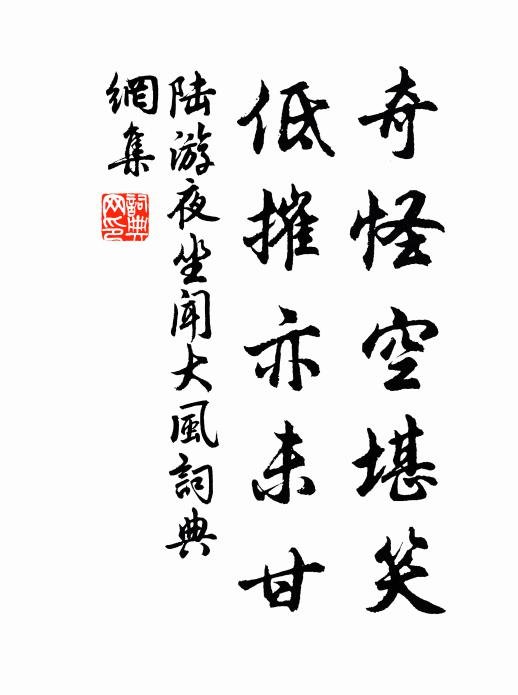 奇怪空堪笑
低摧亦未甘
陆游夜坐闻大風詞典
網集
詞典
网印